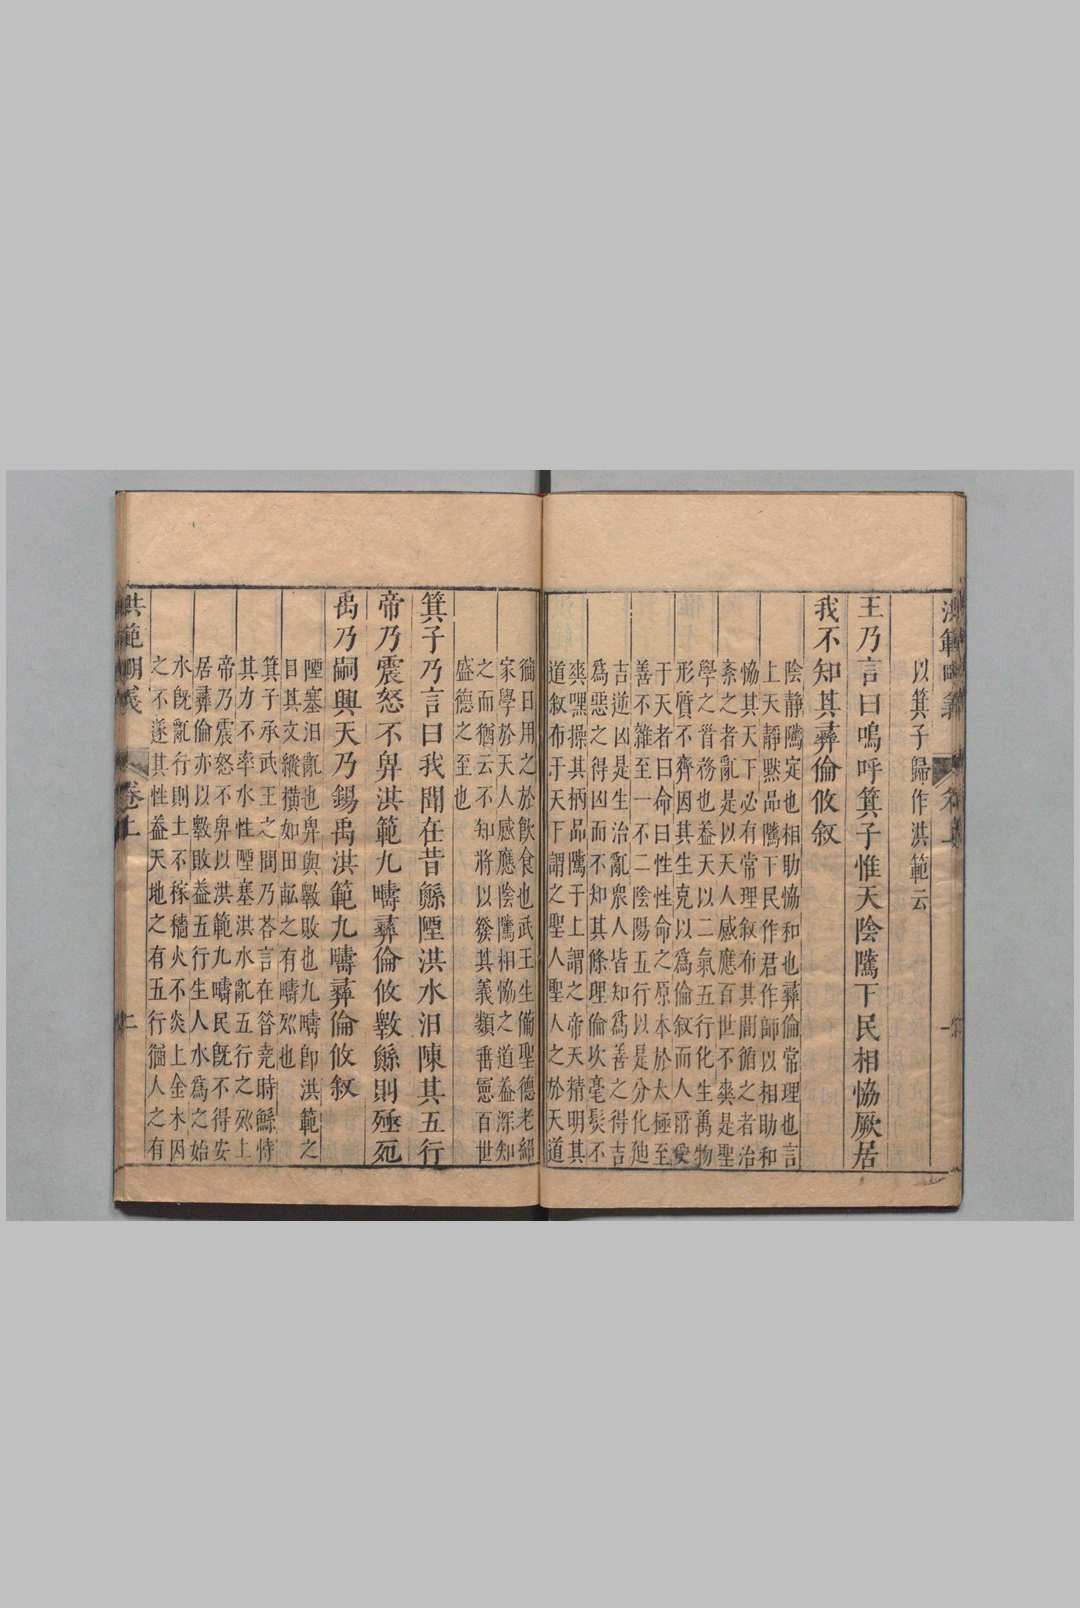 洪範明義 卷上 一
以箕子歸作洪範云
王乃言曰嗚呼箕子惟天陰騭下民相恊厥居
我不知其彝倫攸叙
陰靜騭定也相助恊和也彝倫常理也言
上天靜黙品騭下民作君作師以相助和
恊其天下必有常理叙布其間循之者治
紊之者亂是以天人感應百世不爽是聖
學之首務也葢天以二氣五行化生萬物
形質不齊因其生克以爲倫叙而人所愛
于天者曰命曰性性命之原本於太極至
善不雜至一不二隂陽五行以是分化廸
吉逆凶是生治亂衆人皆知爲善之得吉
爲惡之得凶而不知其條理倫次毫髮不
爽嘿操其柄品騭于上謂之帝天精明其
道叙布于天下謂之聖人聖人之於天道
猶日用之於飲食也武王生備聖德老綿
家學於天人感應陰騭相恊之道葢深知
之而猶云不知將以發其義類垂憲百世
盛德之至也
箕子乃言曰我聞在昔鯀陻洪水汨陳其五行
帝乃震怒不畀洪範九疇彝倫攸斁鯀則殛死
禹乃嗣興天乃錫禹洪範九疇彝倫攸叙
陻塞汨亂也畀與斁敗也九疇卽洪範之
目其文縱橫如田畝之有疇列也
箕子承武王之問乃荅言在昔堯時鯀恃
其力不率水性陻塞洪水亂五行之列上
帝乃震怒不畀以洪範九疇民旣不得安
居彝倫亦以斁敗葢五行生人水爲之始
水旣亂行則土不稼穡火不炎上金木因
之不遂其性葢天地之有五行猶人之有
洪範明義 卷上 二